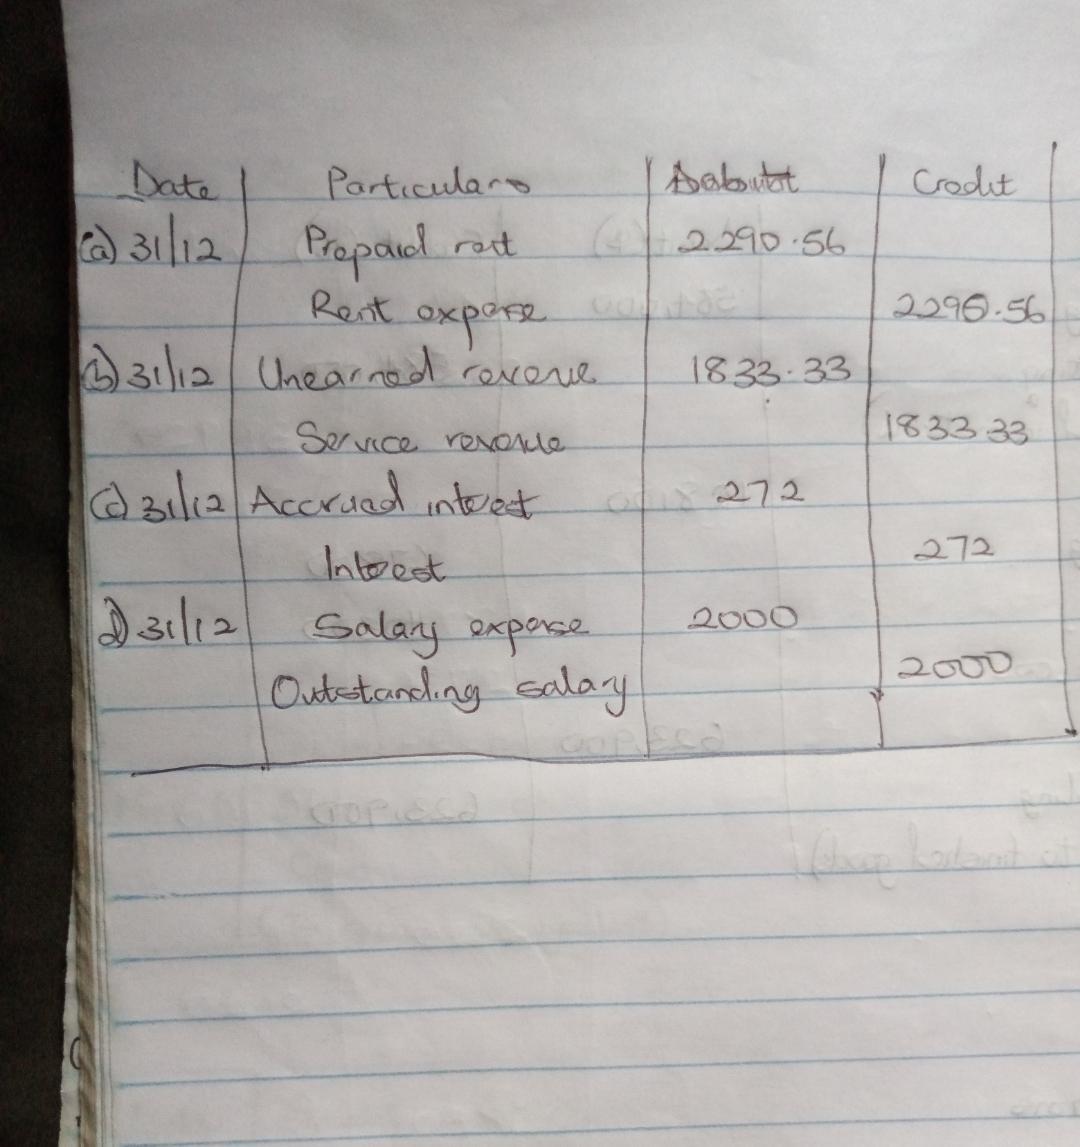 Date Particulars Debit Credit
(a) 31/12 Prepaid rent 2290.56
Rent expense 2290.56
(b) 31/12 Unearned revenue 1833.33
Service revenue 1833.33
(c) 31/12 Accrued interest 272
Interest 272
d) 31/12 Salary expense 2000
Outstanding salary 2000